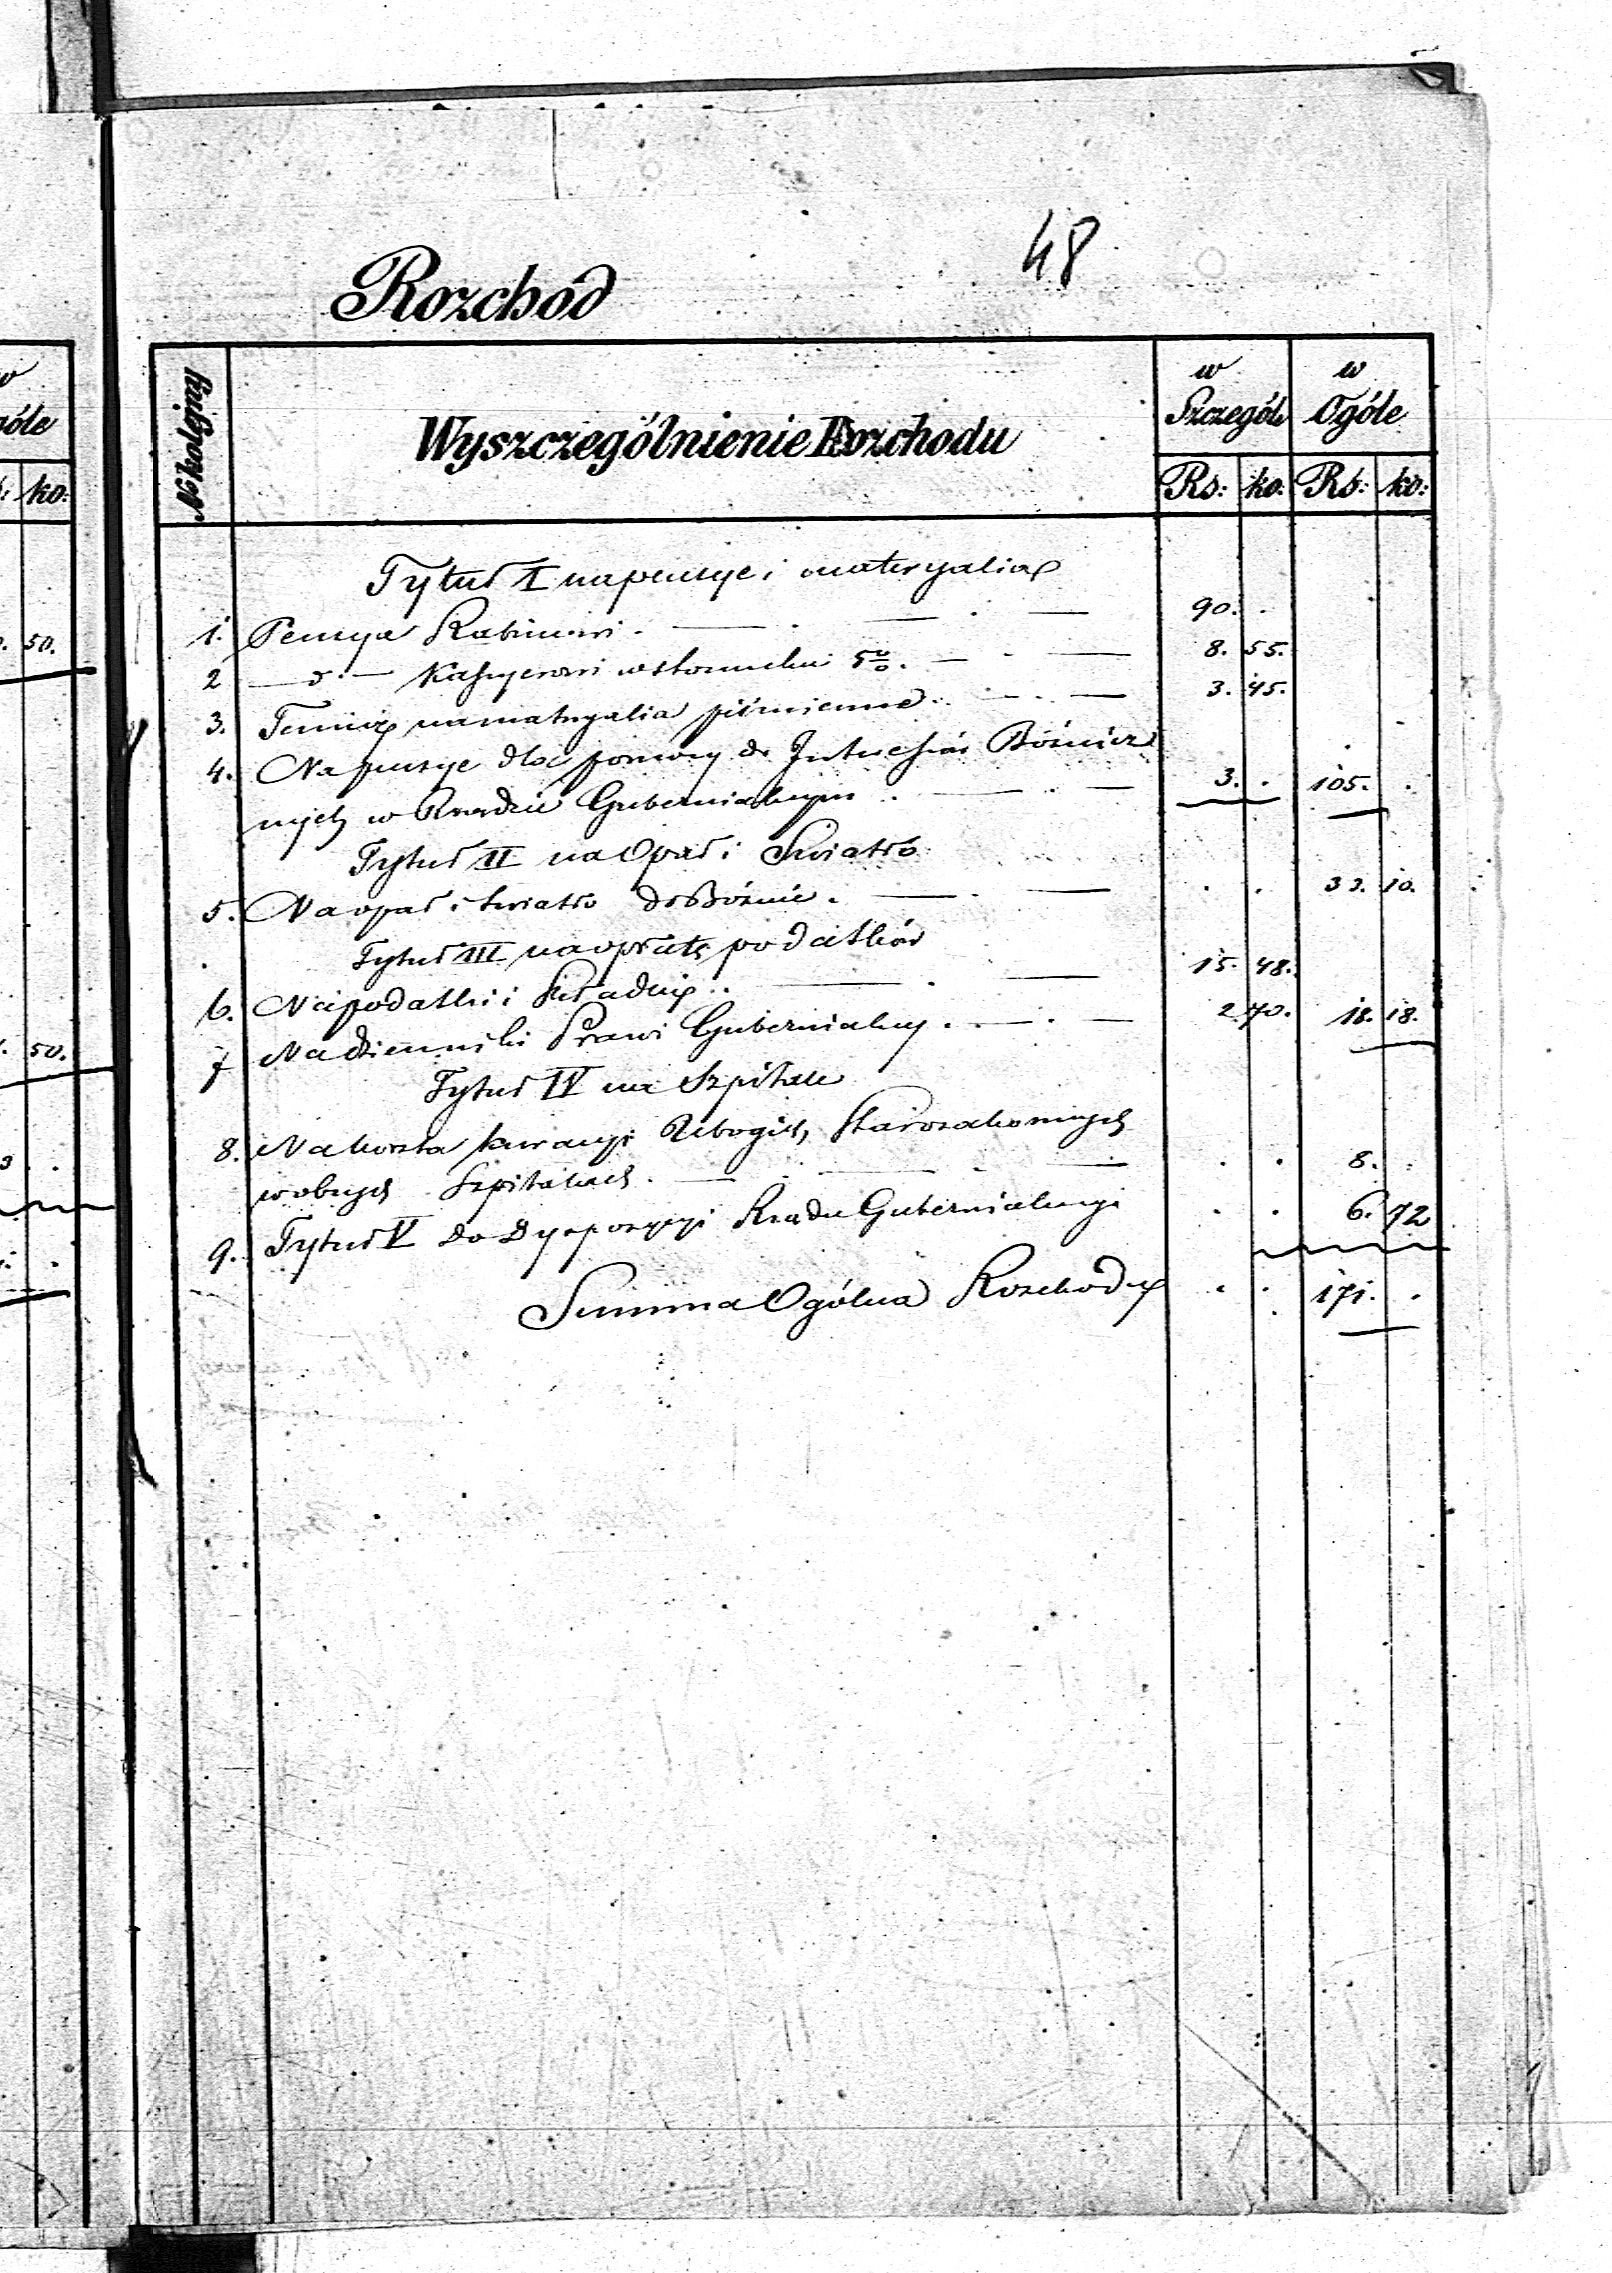 48
Rozchód
№ kolejny
Wyszczególnienie Rozchodu
w Szczególe
w Ogóle
Rs: ko: Rs: ko:
Tytuł I na pensye i materyalia
1. Pensya Rabinowi 90. .
2 — d° — Kassyerowi w stosunku 5% 8. 55.
3. Temuż na matryalia piśmienne 3. 45.
4. Na pensye dla pomocy do Interessów Bóźnicz
nych w Rządzie Gubernialnym 3. . 105. .
Tytuł II na Opał i Swiatło
5. Na opał i swiatło do Bóźnic . . 33. 10.
Tytuł III na opłatę podatków
6. Na podatki i Składkę 15. 48.
7 Na dzienniki Praw i Gubernialny 2. 70. 18. 18.
Tytuł IV na Szpitale
8. Na koszta kuracyi Ubogich, Starozakonnych
w obcych Szpitalach . . 8. .
9. Tytuł V do Dyspozycyi Rządu Gubernialnego . . 6. 72
Summa Ogólna Rozchodu . . 171. .
w
góle
ko:
50.
50.
3 .